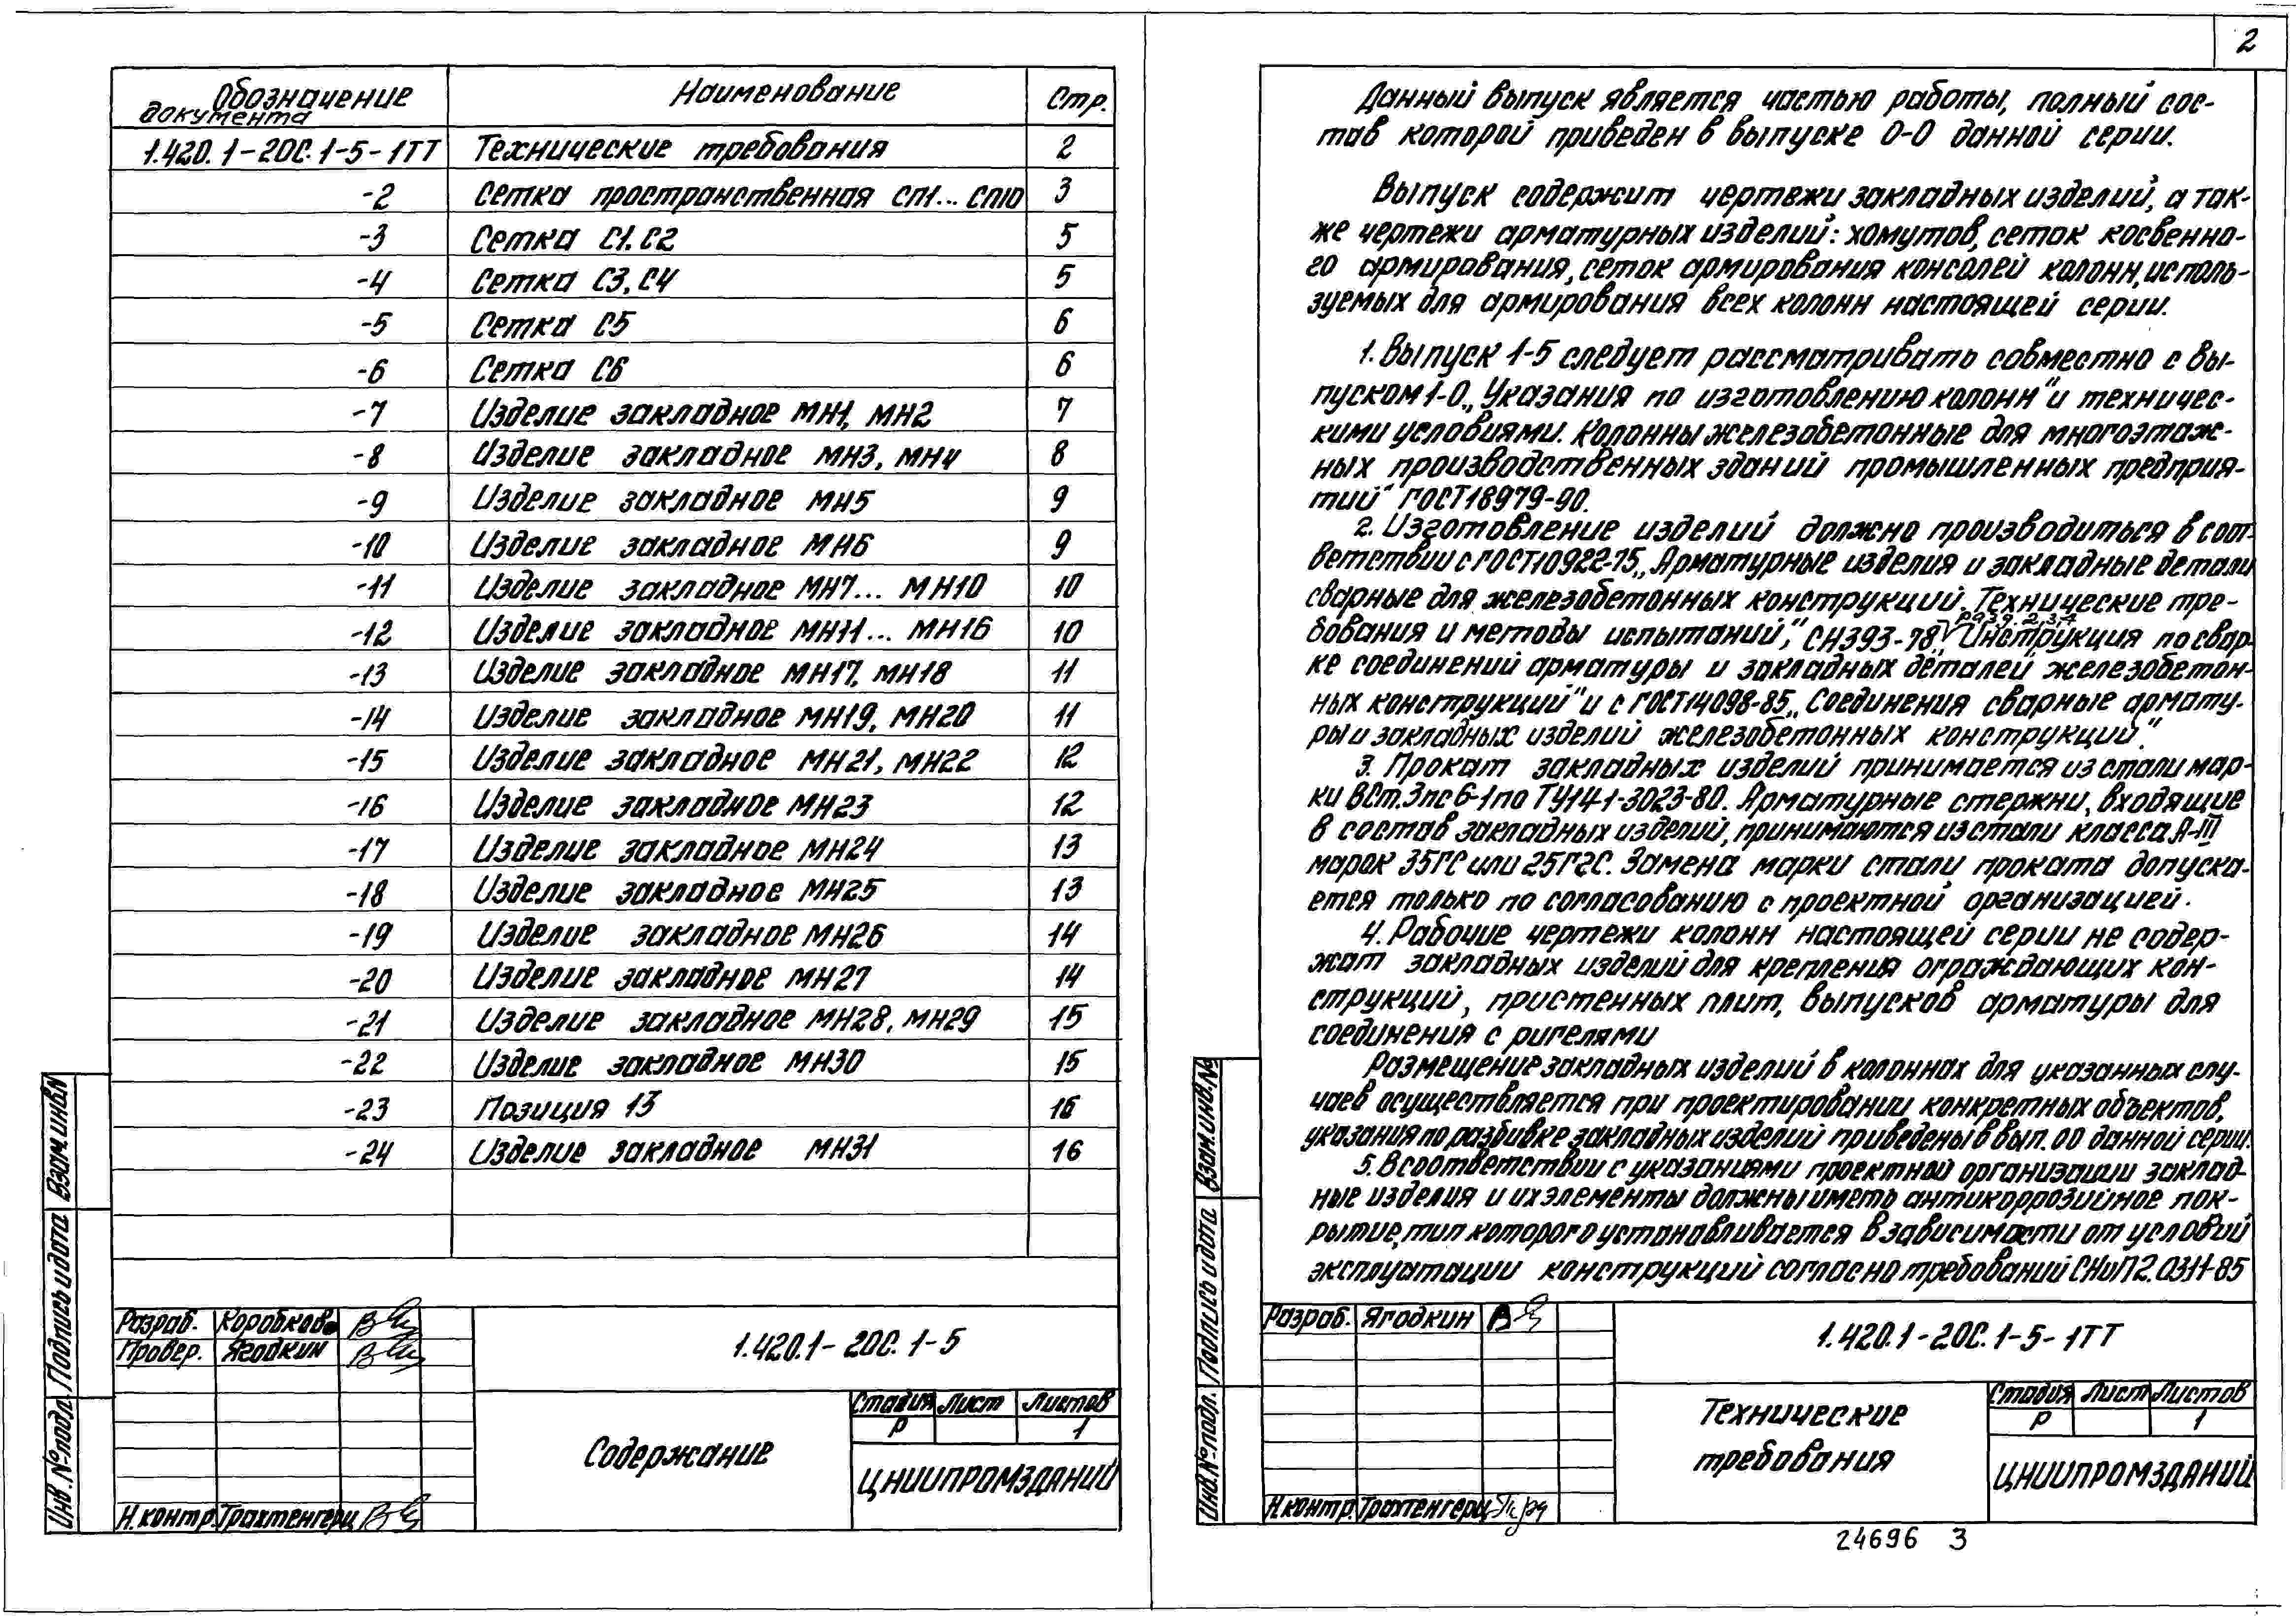 Обозначение документа Наименование Стр.
1.420.1-20С.1-5-1ТТ Технические требования 2
-2 Сетка пространственная СП1... СП10 3
-3 Сетка С1. С2 5
-4 Сетка С3, С4 5
-5 Сетка С5 6
-6 Сетка С6 6
-7 Изделие закладное МН1, МН2 7
-8 Изделие закладное МН3, МН4 8
-9 Изделие закладное МН5 9
-10 Изделие закладное МН6 9
-11 Изделие закладное МН7... МН10 10
-12 Изделие закладное МН11... МН16 10
-13 Изделие закладное МН17, МН18 11
-14 Изделие закладное МН19, МН20 11
-15 Изделие закладное МН21, МН22 12
-16 Изделие закладное МН23 12
-17 Изделие закладное МН24 13
-18 Изделие закладное МН25 13
-19 Изделие закладное МН26 14
-20 Изделие закладное МН27 14
-21 Изделие закладное МН28, МН29 15
-22 Изделие закладное МН30 15
-23 Позиция 13 16
-24 Изделие закладное МН31 16
Взам.инв№
Подпись и дата
Инв.№подл.
Разраб. Коробков
Провер. Ягодкин
Н.контр. Трахтенгерц
1.420.1-20С.1-5
Содержание
Стадия Лист Листов
Р 1
ЦНИИПРОМЗДАНИЙ
2
Данный выпуск является частью работы, полный сос-
тав которой приведен в выпуске 0-0 данной серии.
Выпуск содержит чертежи закладных изделий, а так-
же чертежи арматурных изделий: хомутов, сеток косвенно-
го армирования, сеток армирования консолей колонн, исполь-
зуемых для армирования всех колонн настоящей серии.
1. Выпуск 1-5 следует рассматривать совместно с вы-
пуском 1-0 „Указания по изготовлению колонн" и техничес-
кими условиями. Колонны железобетонные для многоэтаж-
ных производственных зданий промышленных предприя-
тий" ГОСТ18979-90.
2. Изготовление изделий должно производиться в соот-
ветствии с ГОСТ10922-75 „Арматурные изделия и закладные детали
сварные для железобетонных конструкций. Технические тре-
бования и методы испытаний", СН393-78 „Инструкция по свар-
ке соединений арматуры и закладных деталей железобетон-
ных конструкций" и с ГОСТ14098-85 „Соединения сварные армату-
ры и закладных изделий железобетонных конструкций".
3. Прокат закладных изделий принимается из стали мар-
ки ВСт.3пс6-1 по ТУ14-1-3023-80. Арматурные стержни, входящие
в состав закладных изделий, принимаются из стали класса А-III
марок 35ГС или 25Г2С. Замена марки стали проката допуска-
ется только по согласованию с проектной организацией.
4. Рабочие чертежи колонн настоящей серии не содер-
жат закладных изделий для крепления ограждающих кон-
струкций, пристенных плит, выпусков арматуры для
соединения с ригелями
Размещение закладных изделий в колоннах для указанных слу-
чаев осуществляется при проектировании конкретных объектов,
указания по разбивке закладных изделий приведены в вып. 00 данной серии.
5. В соответствии с указаниями проектной организации заклад-
ные изделия и их элементы должны иметь антикоррозийное пок-
рытие, тип которого устанавливается в зависимости от условий
эксплуатации конструкций согласно требований СНиП 2.03.11-85
Взам.инв.№
Подпись и дата
Инв.№подл.
Разраб. Ягодкин
Н.контр. Трахтенгерц
1.420.1-20С.1-5-1ТТ
Технические
требования
Стадия Лист Листов
Р 1
ЦНИИПРОМЗДАНИЙ
24696 3